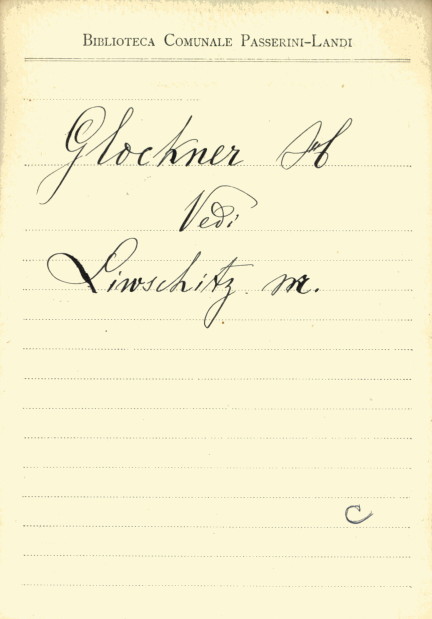 BIBLIOTECA COMUNALE PASSERINI-LANDI
Glockner H
Vedi
Liwschitz m.
C